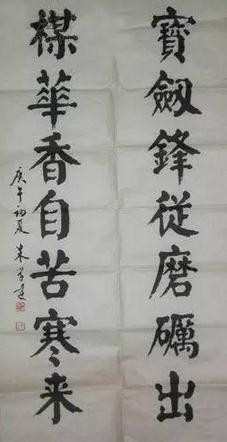 寶劔鋒從磨礪出
楳華香自苦寒来
庚午初夏 朱